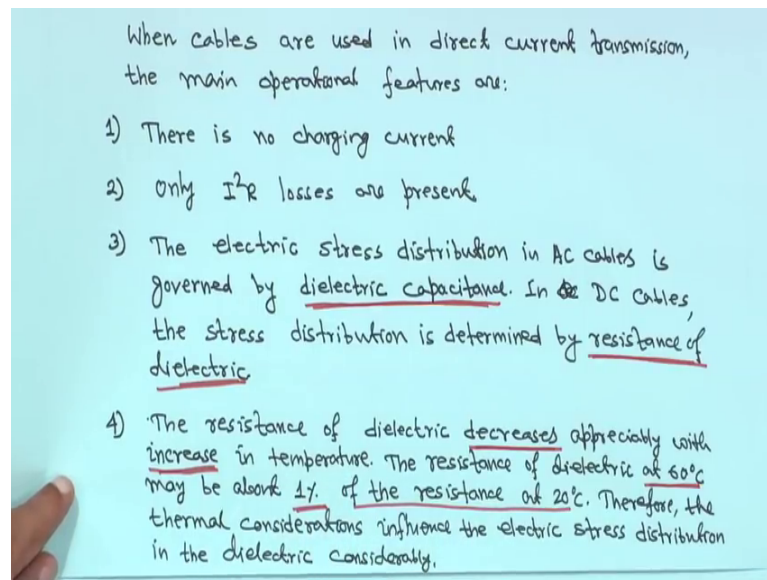 When cables are used in direct current transmission,
the main operational features are:
1) There is no charging current
2) only I²R losses are present.
3) The electric stress distribution in AC cables is
governed by dielectric capacitance. In DC cables,
the stress distribution is determined by resistance of
dielectric
4) The resistance of dielectric decreases appreciably with
increase in temperature. The resistance of dielectric at 60°C
may be about 1% of the resistance at 20°C. Therefore, the
thermal considerations influence the electric stress distribution
in the dielectric considerably.